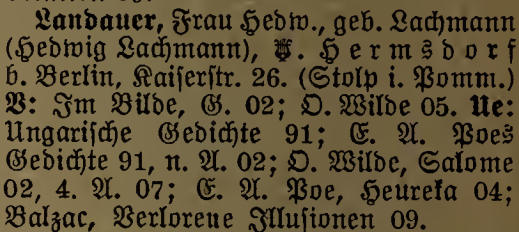 Landauer, Frau Hedw., geb. Lachmann
(Hedwig Lachmann), W. Hermsdorf
b. Berlin, Kaiserstr. 26. (Stolp i. Pomm.)
V: Im Bilde, G. 02; O. Wilde 05. Ue:
Ungarische Gedichte 91; E. A. Poes
Gedichte 91, n. A. 02; O. Wilde, Salome
02, 4. A. 07; E. A. Poe, Heureka 04;
Balzac, Verlorene Illusionen 09.